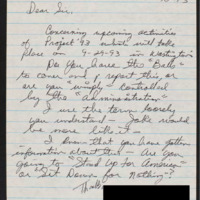 Dear Sir.
Concerning upcoming activities
of Project '93 which will take
place on 9-29-93 in
Do you have the "Balls"
to cover and report this, or
are you simply controlled
by the "Administration"
I use the term loosely
you understand - Joke would
be more like it -
I know that you have gotten
information about this - Are you
going to "Stand Up For America"
or "Sit Down for Nothing"?
Thanks